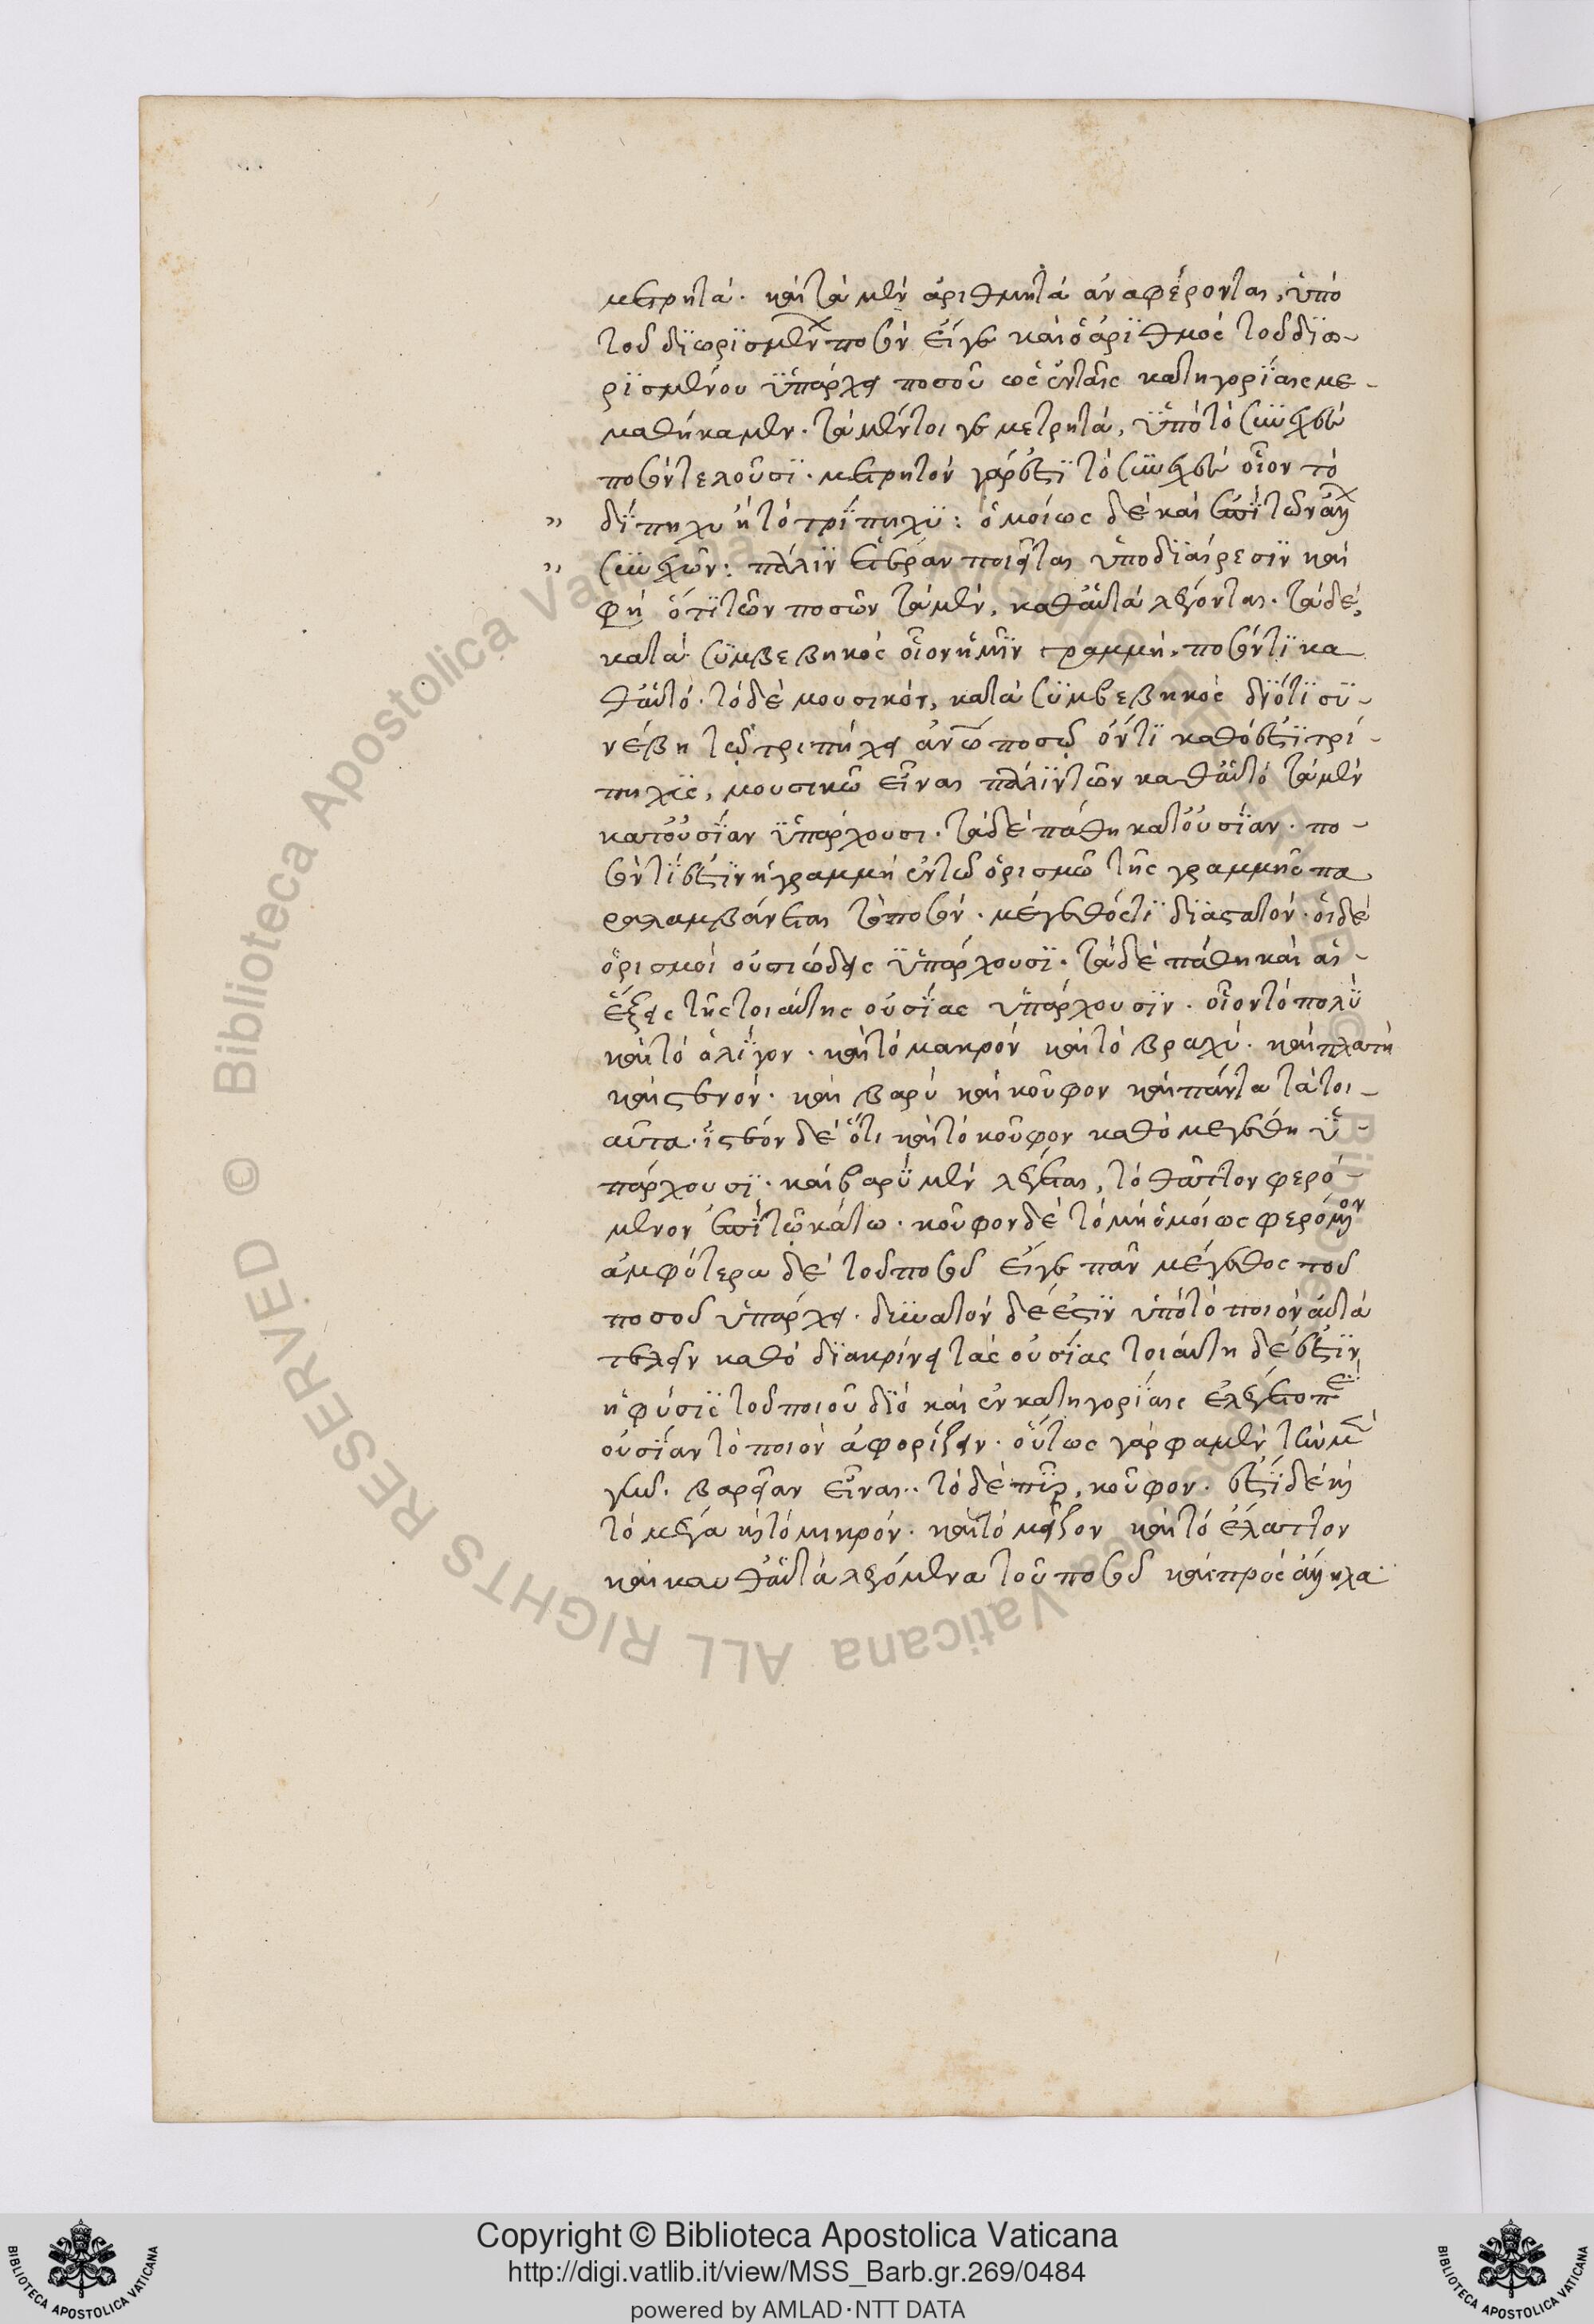 μετρητά. καὶ τὰ μὲν ἀριθμητὰ ἀναφέρονται, ὑπὸ
τοῦ διωρισμέν ποσὸν εἴγε καὶ ὁ ἀριθμὸς τοῦ διω-
ρισμένου ὑπάρχει ποσοῦ ὡς ἐν ταῖς κατηγορίαις με-
μαθήκαμεν. τὰ μέντοι γε μετρητά, ὑπὸ τὸ συνεχὲς
ποσὸν τελοῦσι. μετρητὸν γάρ ἐστι τὸ συνεχὲς οἷον τὸ
δίπηχυ ἢ τὸ τρίπηχυ: ὁμοίως δὲ καὶ ἐπὶ τῶν ἄλλ
συνεχῶν: πάλιν ἑτέραν ποιεῖται ὑποδιαίρεσιν καὶ
φὴ ὅτι τῶν ποσῶν τὰ μὲν, καθ' αὑτὰ λέγονται. τὰ δέ,
κατὰ συμβεβηκὸς οἷον ἡ μὲν γραμμή, ποσόν τι κα
θ' αὑτό. τὸ δὲ μουσικόν, κατὰ συμβεβηκὸς διότι συ-
νέβη τῷ τριπήχει ἀνω ποσῷ ὄντι καθό ἐστι τρί-
πηχις, μουσικῶ εἶναι πάλιν τῶν καθ' αὑτό τὰ μὲν
κατ' οὐσίαν ὑπάρχουσι. τὰ δὲ πάθη κατ' οὐσίαν. πο-
σόν τί ἐστιν ἡ γραμμή ἐν τῷ ὁρισμῶ τῆς γραμμῆς πα
ραλαμβάνεται τὸ ποσόν. μέγεθός τι διαστατόν. οἱ δὲ
ὁρισμοὶ οὐσιώδεις ὑπάρχουσι. τὰ δὲ πάθη καὶ αἱ-
ἕξεις τῆς τοιαύτης οὐσίας ὑπάρχουσιν. οἷον τὸ πολὺ
καὶ τὸ ὀλίγον. καὶ τὸ μακρόν καὶ τὸ βραχύ. καὶ πλατὺ
καὶ στενόν. καὶ βαρὺ καὶ κοῦφον καὶ πάντα τὰ τοι-
αῦτα. ἰστέον δὲ ὅτι καὶ τὸ κοῦφον καθὸ μεγέθη ὑ-
πάρχουσι. καὶ βαρὺ μὲν λέγεται, τὸ θᾶττον φερό-
μενον ἐπὶ τῷ κάτω. κοῦφον δὲ τὸ μὴ ὁμοίως φερόμενον
ἀμφότερα δὲ τοῦ ποσοῦ εἴγε πᾶν μέγεθος τοῦ
ποσοῦ ὑπάρχει. δυνατὸν δέ ἐστιν ὑπὸ τὸ ποιὸν αὐτὰ
τελεῖν καθὸ διακρίνει τὰς οὐσίας τοιαύτη δέ ἐστιν
ἡ φύσις τοῦ ποιοῦ διὸ καὶ ἐν κατηγορίαις ἐλέγετο περὶ
οὐσίαν τὸ ποιὸν ἀφορίζειν. οὕτως γάρ φαμεν τὴν μὲν
γῆν. βαρεῖαν εἶναι.. τὸ δὲ πῦρ, κοῦφον. ἐστὶ δὲ καὶ
τὸ μέγα καὶ τὸ μικρόν. καὶ τὸ μεῖζον καὶ τὸ ἔλαττον
καὶ καθ' αὑτὰ λεγόμενα τοῦ ποσοῦ καὶ πρὸς ἄλληλα
Copyright © Biblioteca Apostolica Vaticana
http://digi.vatlib.it/view/MSS_Barb.gr.269/0484
powered by AMLAD·NTT DATA